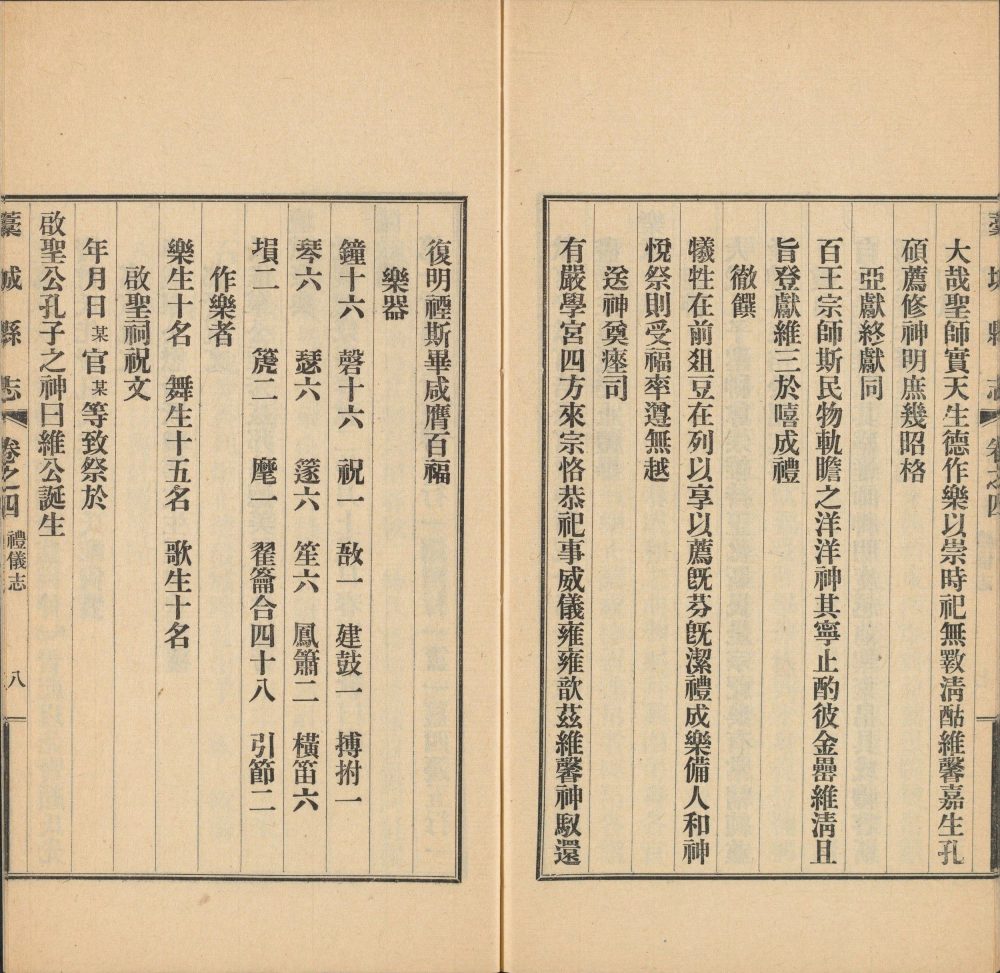 藁城縣志 卷之四
大哉聖師實天生德作樂以崇時祀無斁淸酤維馨嘉生孔
碩薦修神明庶幾昭格
亞獻終獻同
百王宗師斯民物軌瞻之洋洋神其寧止酌彼金罍維淸且
旨登獻維三於嘻成禮
徹饌
犧牲在前俎豆在列以享以薦旣芬旣潔禮成樂備人和神
悅祭則受福率遵無越
送神奠瘞司
有嚴學宮四方來宗恪恭祀事威儀雍雍歆茲維馨神馭還
復明禋斯畢咸膺百福
樂器
鐘十六 磬十六 祝一 敔一 建鼓一 搏拊一
琴六 瑟六 篴六 笙六 鳳簫二 橫笛六
塤二 篪二 麾一 翟籥合四十八 引節二
作樂者
樂生十名 舞生十五名 歌生十名
啟聖祠祝文
年月日某官某等致祭於
啟聖公孔子之神曰維公誕生
藁城縣志 卷之四 禮儀志 八